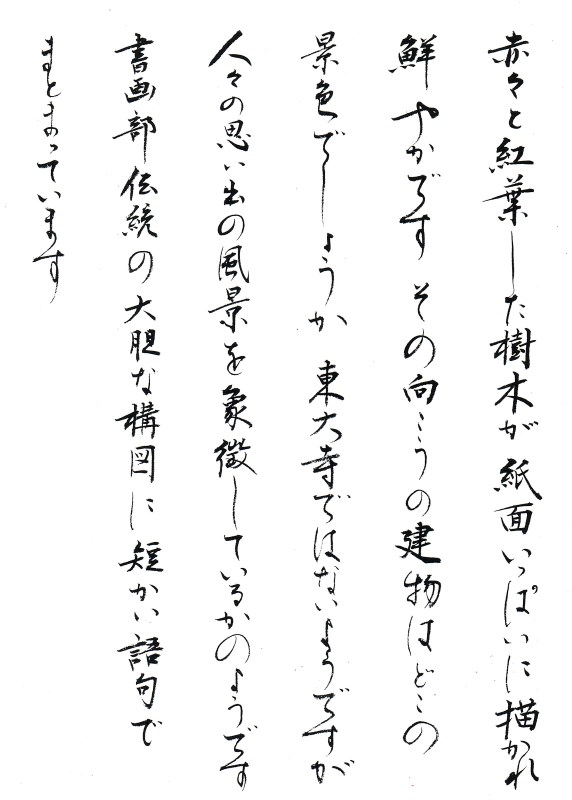 赤々と紅葉した樹木が紙面いっぱいに描かれ
鮮やかです その向こうの建物はどこの
景色でしょうか 東大寺ではないようですが
人々の思い出の風景を象徴しているかのようです
書画部伝統の大胆な構図に短かい語句で
まとまっています